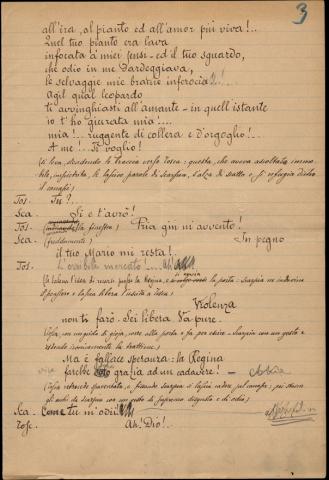 3
all'ira, al pianto ed all'amor più viva!..
Quel tuo pianto era lava
infocata a' miei sensi - ed il tuo sguardo,
che odio in me dardeggiava,
le selvaggie mie bramie inferocia!..
Agil qual leopardo
ti avvinghiasti all'amante - in quell'istante
io t'ho giurata mia!....
mia!.. ruggente di collera e d'orgoglio!..
A me!.. Ti voglio!
(si leva, stendendo le braccia verso Tosca: questa, che aveva ascoltata immo-
bile, impietrita, le lascive parole di Scarpia, s'alza di scatto e si rifugia dietro
il canapé)
Tos. Tu?..
Sca. Sì e t'avrò!
Tos. (la finestra) Pria giù mi avvento!
Sca. (freddamente) In pegno
il tuo Mario mi resta!
Tos. L'orribile mercato!.. Ah!
(le balena l'idea di recarsi presso la Regina, e la porta - Scarpia ne indovina
il pensiero e lascia libera l'uscita a Tosca)
Violenza
non ti farò. Sei libera. Va pure.
(Tosca, con un grido di gioja, corre alla porta e fa per escire - Scarpia con un gesto e
ridendo ironicamente la trattiene)
Ma è fallace speranza: la Regina
farebbe grazia ad un cadavere! -
(Tosca retrocede spaventata, e, fissando Scarpia si lascia cadere sul canapé; poi storna
gli occhi da Scarpia con un gesto di supremo disgusto e di odio)
Sca. Come tu m'odii!
Tosc. Ah! Dio!..